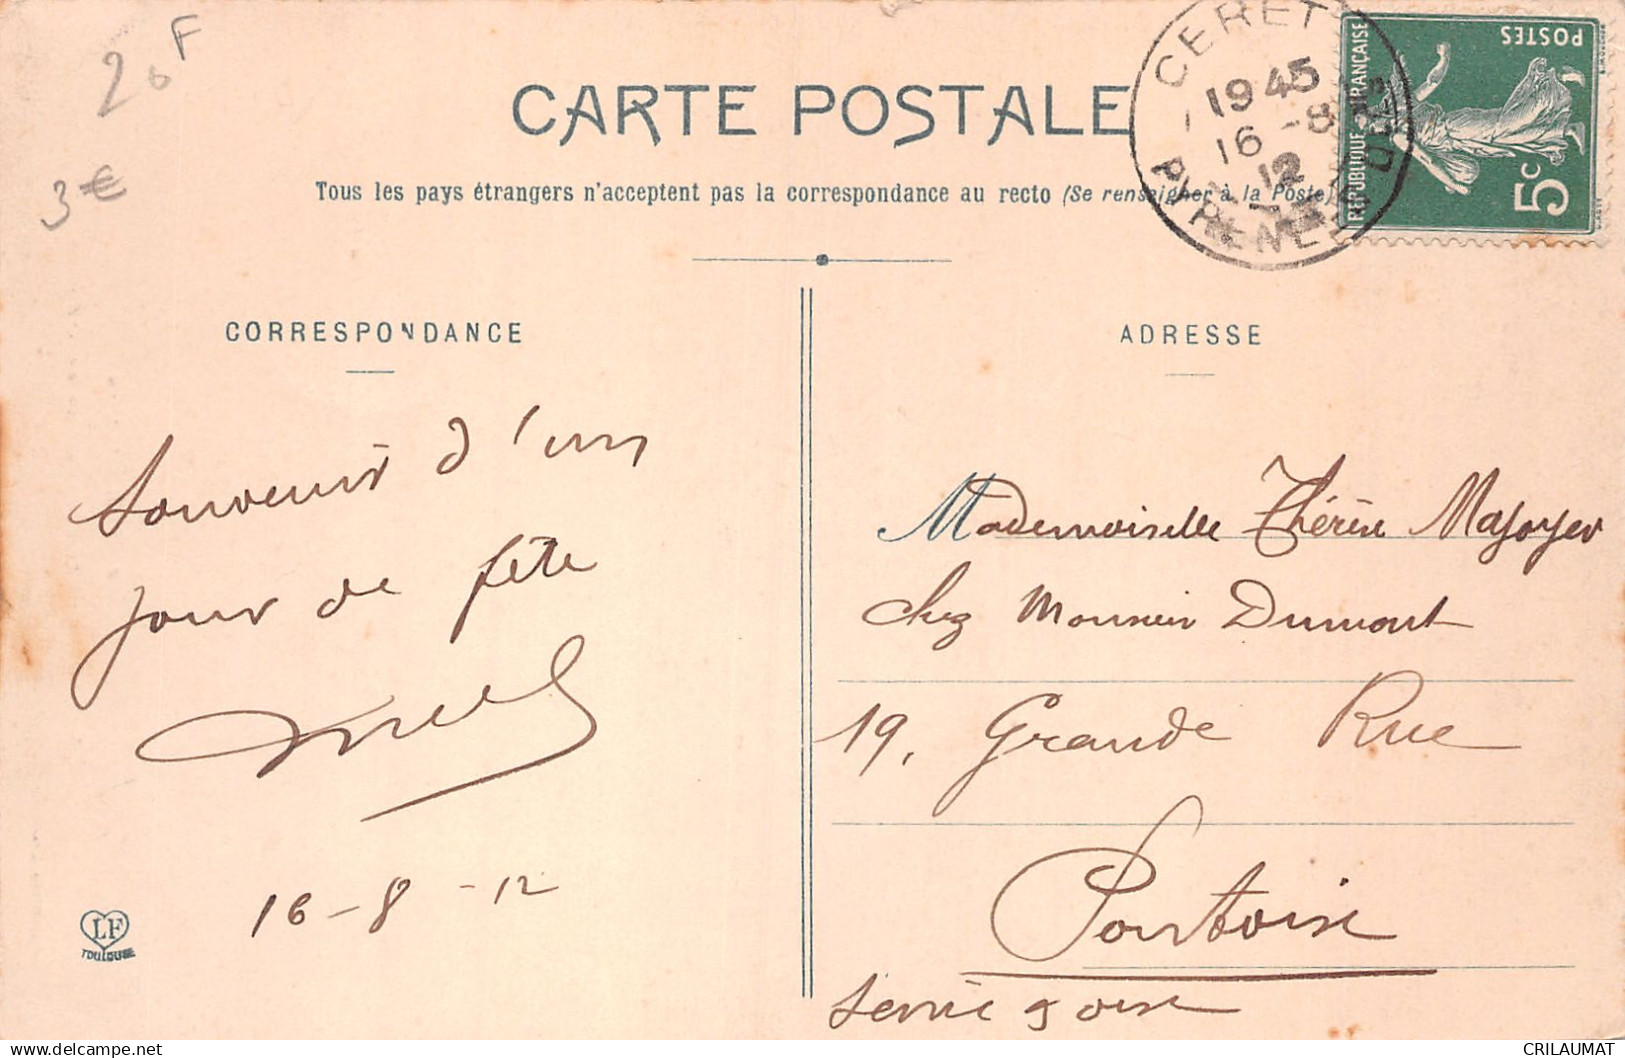 20F
3€
CARTE POSTALE
Tous les pays étrangers n'acceptent pas la correspondance au recto (Se renseigner à la Poste)
CERET
1945
16 -8
12
PYRENEES
RÉPUBLIQUE FRANÇAISE
POSTES
5c
CORRESPONDANCE
Souvenir d'un
jour de fête
16-8-12
LF
TOULOUSE
ADRESSE
Mademoiselle Thérèse
chez Monsieur Dumont
19, Grande Rue
Pontoise
Seine & Oise
CRILAUMAT